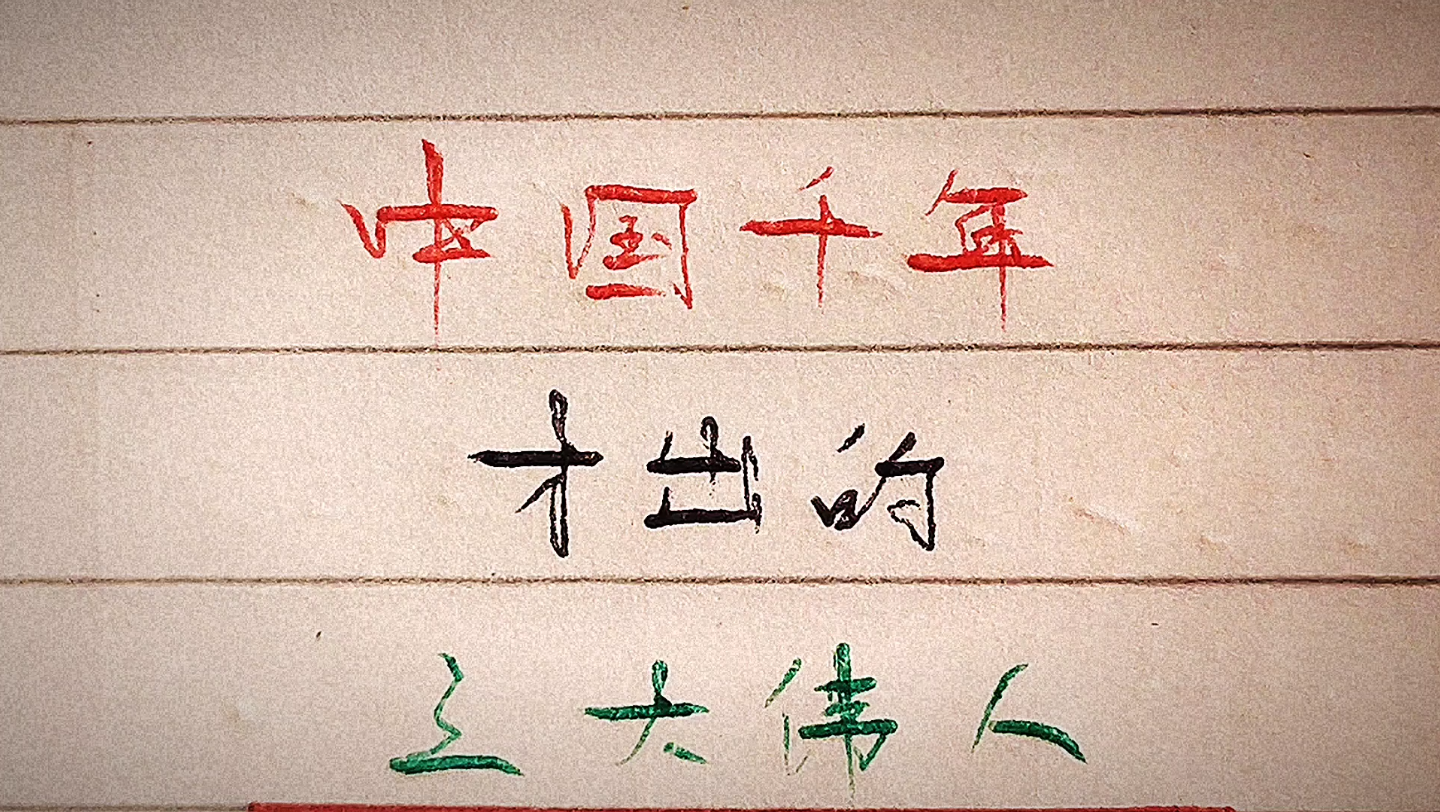 中国千年
才出的
三大伟人